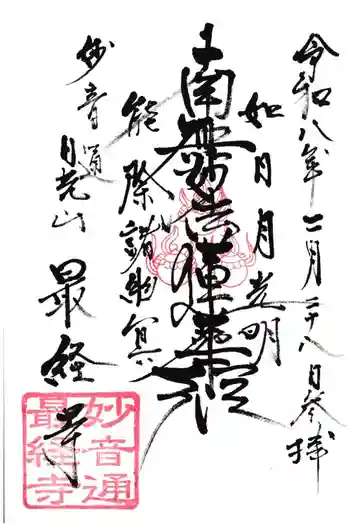 令和八年二月二十八日参拝
如日月光明
南無妙法蓮華経
能除諸幽冥
妙音通
日光山
最経寺
妙音通
最経寺